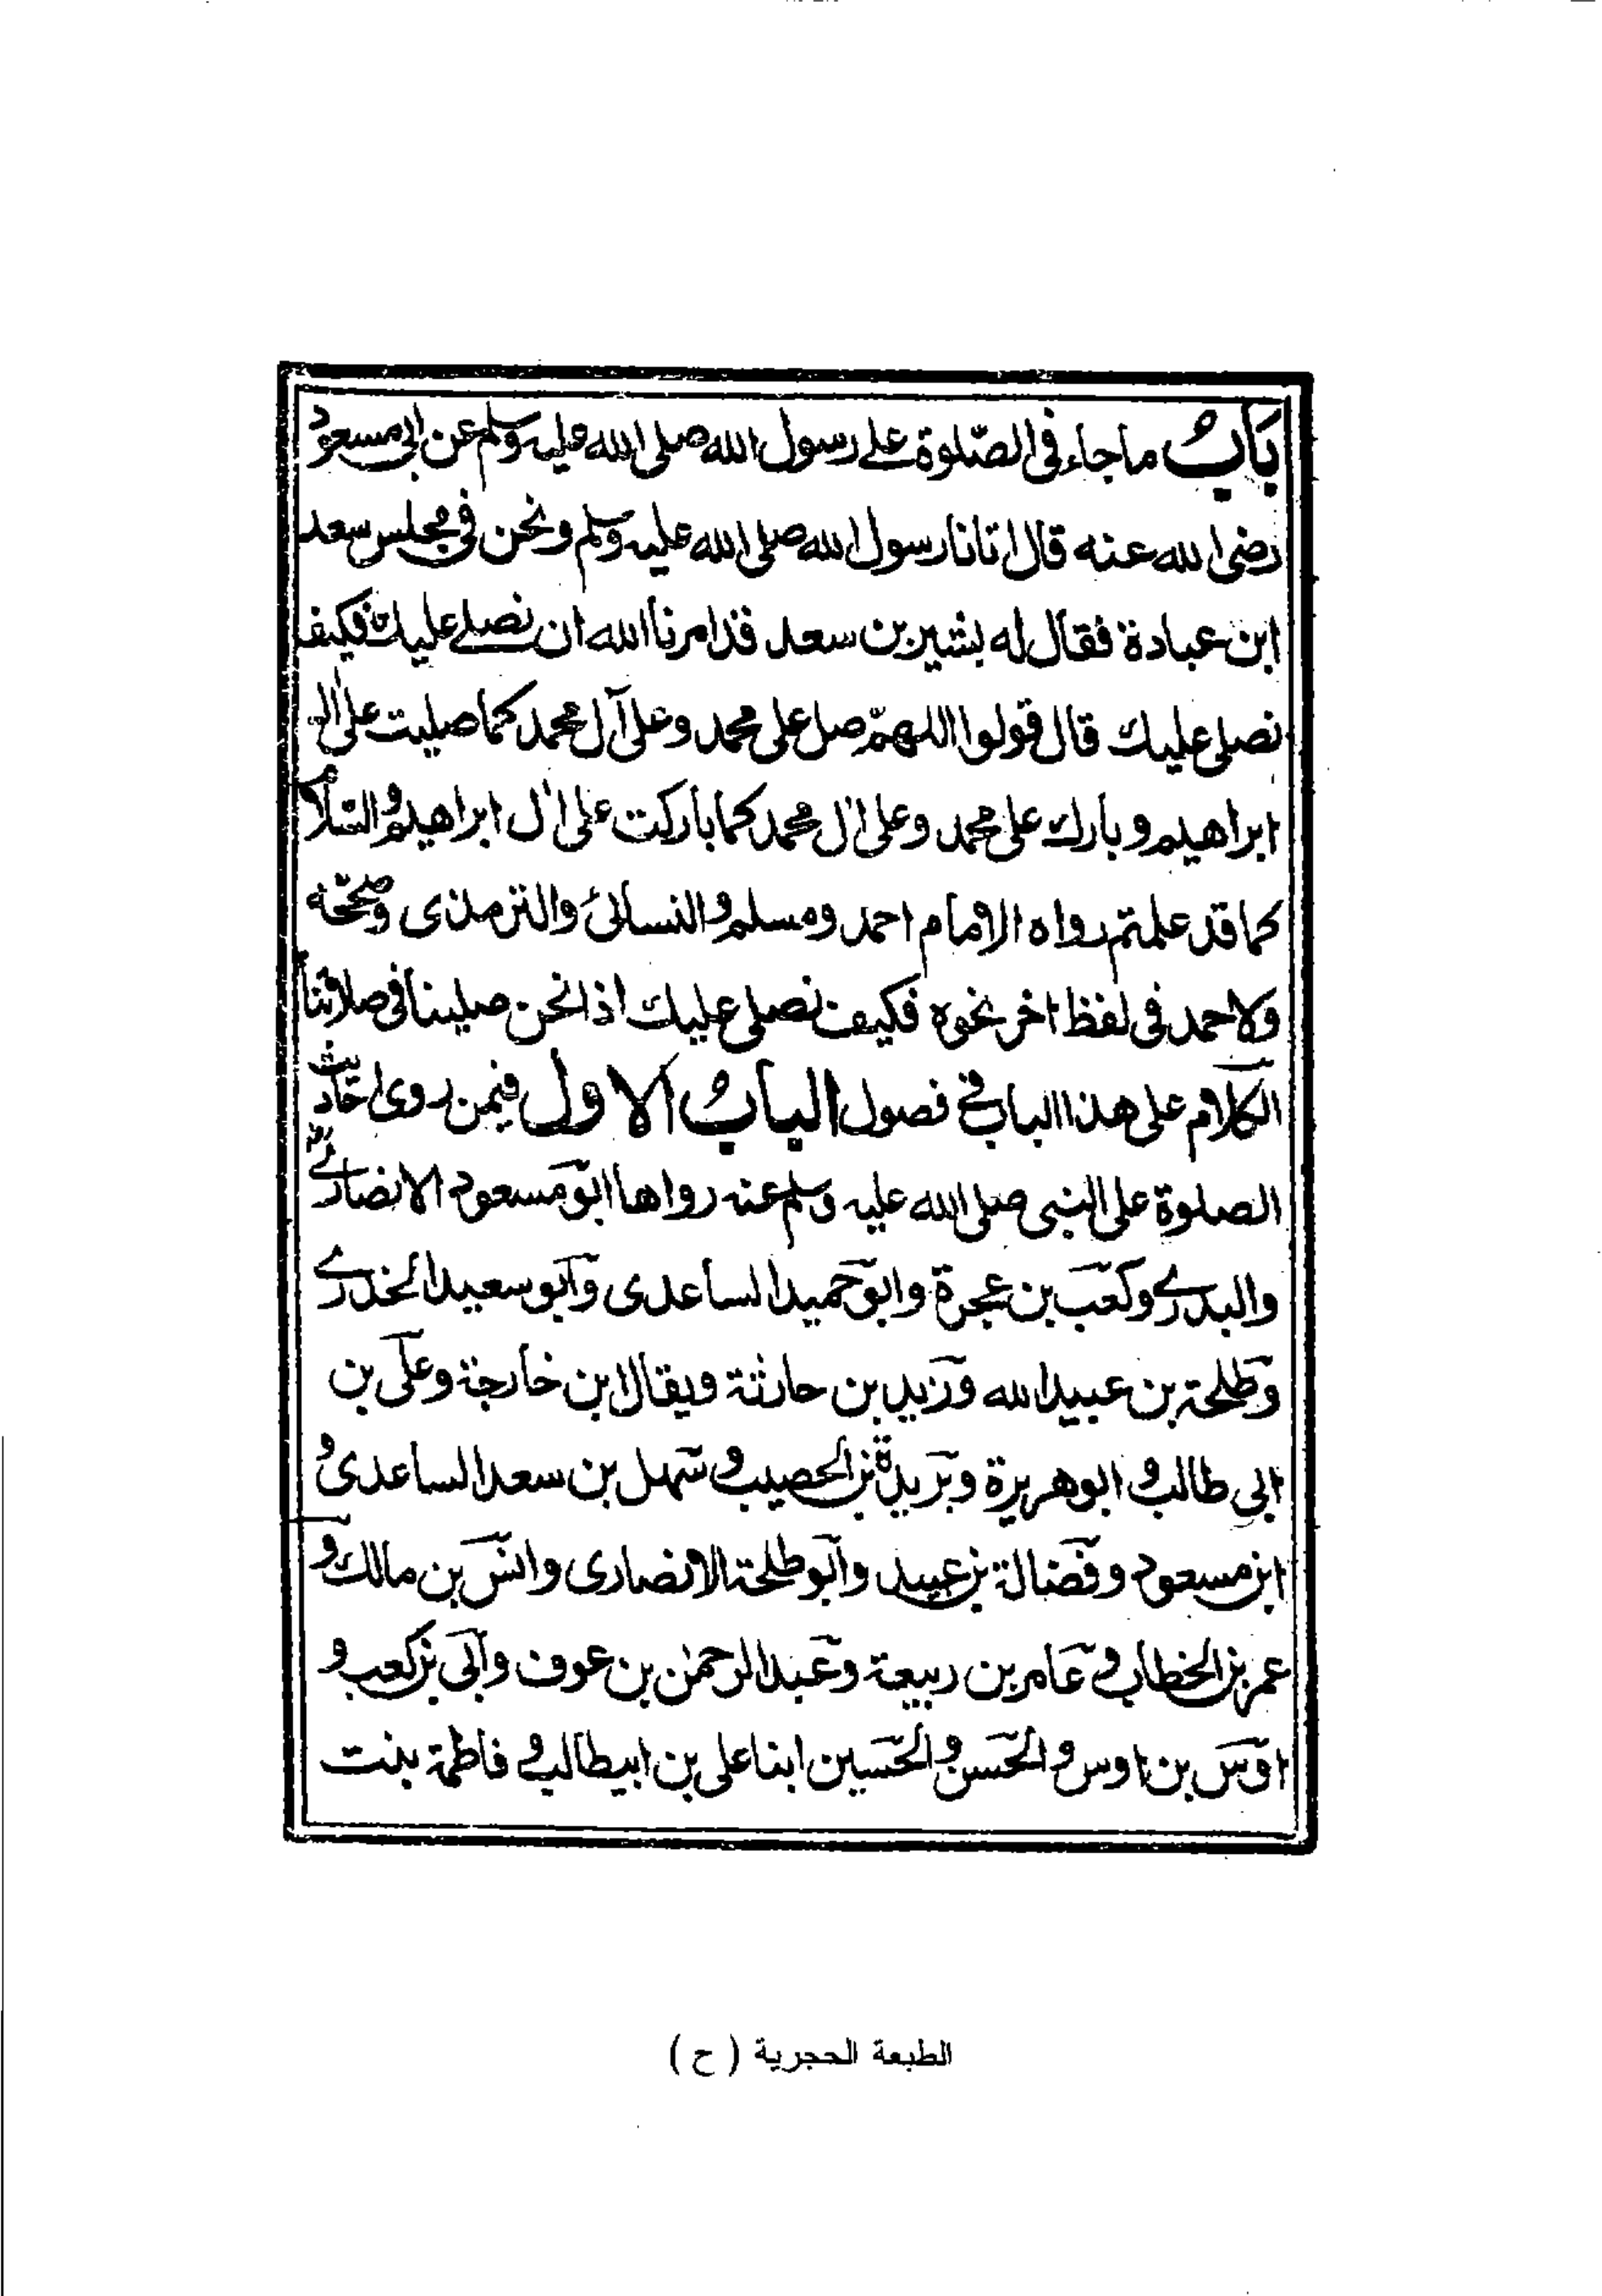 باب ما جاء فى الصّلوة على رسول الله صلى الله عليه وسلم عن ابى مسعود
رضى الله عنه قال اتانا رسول الله صلى الله عليه وسلم ونحن فى مجلس سعد
ابن عبادة فقال له بشير بن سعد قد امرنا الله ان نصلى عليك فكيف
نصلى عليك قال قولوا اللهمّ صل على محمد وعلى آل محمد كما صليت على ال
ابراهيم وبارك على محمد وعلى ال محمد كما باركت على ال ابراهيم والسلام
كما قد علمتم رواه الامام احمد ومسلم والنسائى والترمذى وصححه
ولاحمد فى لفظ اخر نحوه فكيف نصلى عليك اذا نحن صلينا فى صلاتنا
الكلام على هذا الباب فى فصول الباب الاول فيمن روى احاديث
الصلوة على النبى صلى الله عليه وسلم عنه رواها ابو مسعود الانصارى
والبدرى وكعب بن عجرة وابو حميد الساعدى وابو سعيد الخدرى
وطلحة بن عبيد الله وزيد بن حارثة ويقال ابن خارجة وعلى بن
ابى طالب و ابو هريرة وبريدة بن الحصيب و سهل بن سعد الساعدى و
ابن مسعود وفضالة بن عبيد وابو طلحة الانصارى وانس بن مالك و
عمر بن الخطاب و عامر بن ربيعة وعبد الرحمن بن عوف وابى بن كعب و
اوس بن اوس و الحسن و الحسين ابنا على بن ابيطالب و فاطمة بنت
الطبعة الحجرية ( ح )